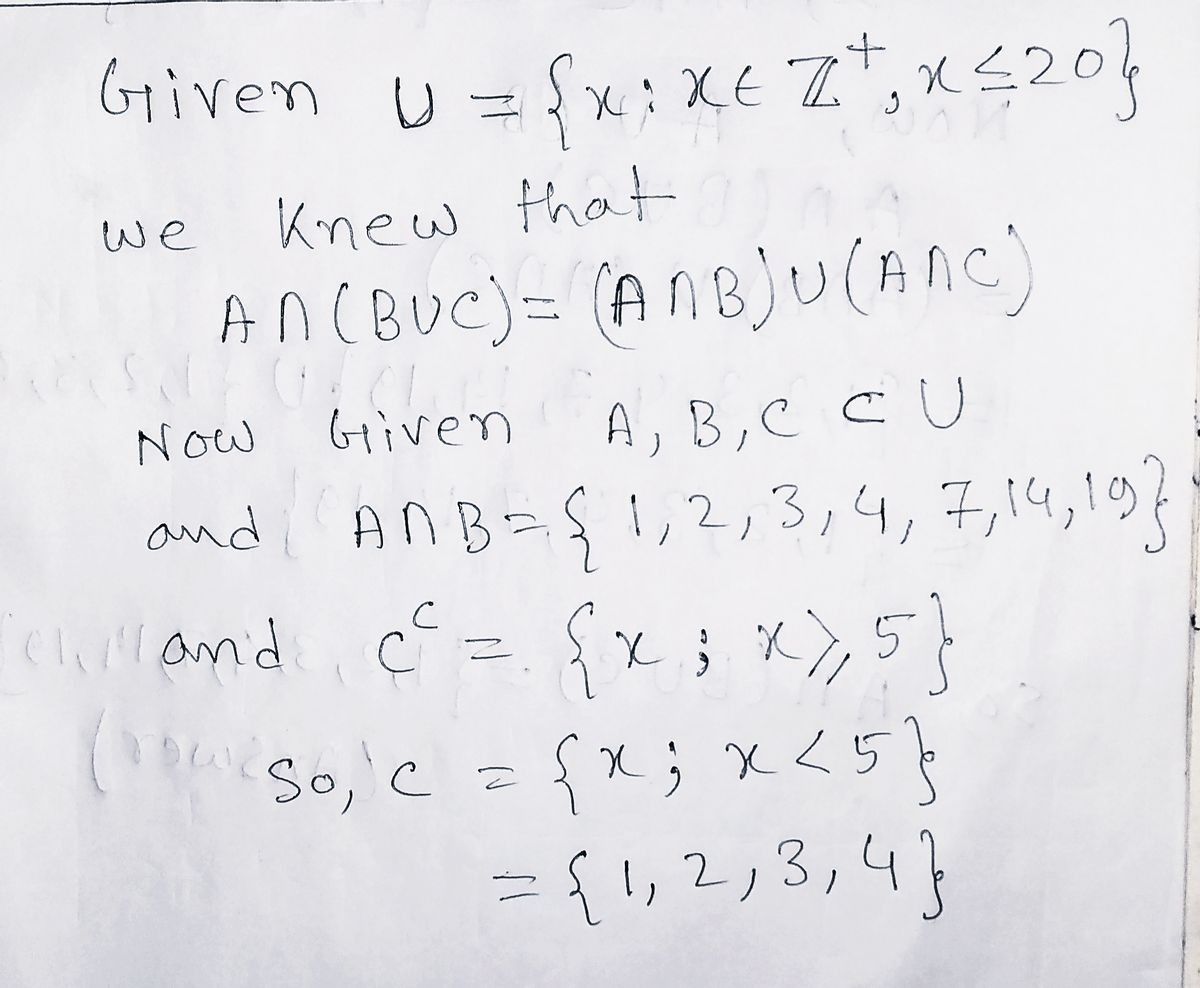 Given U = {x: x∈ ℤ⁺, x≤20}
we knew that
A∩(B∪C)= (A∩B)∪(A∩C)
Now Given A, B, C ⊂ U
and A∩B={1,2,3,4,7,14,19}
and Cᶜ = {x ; x⩾5}
so, C = {x; x<5}
= {1, 2, 3, 4}